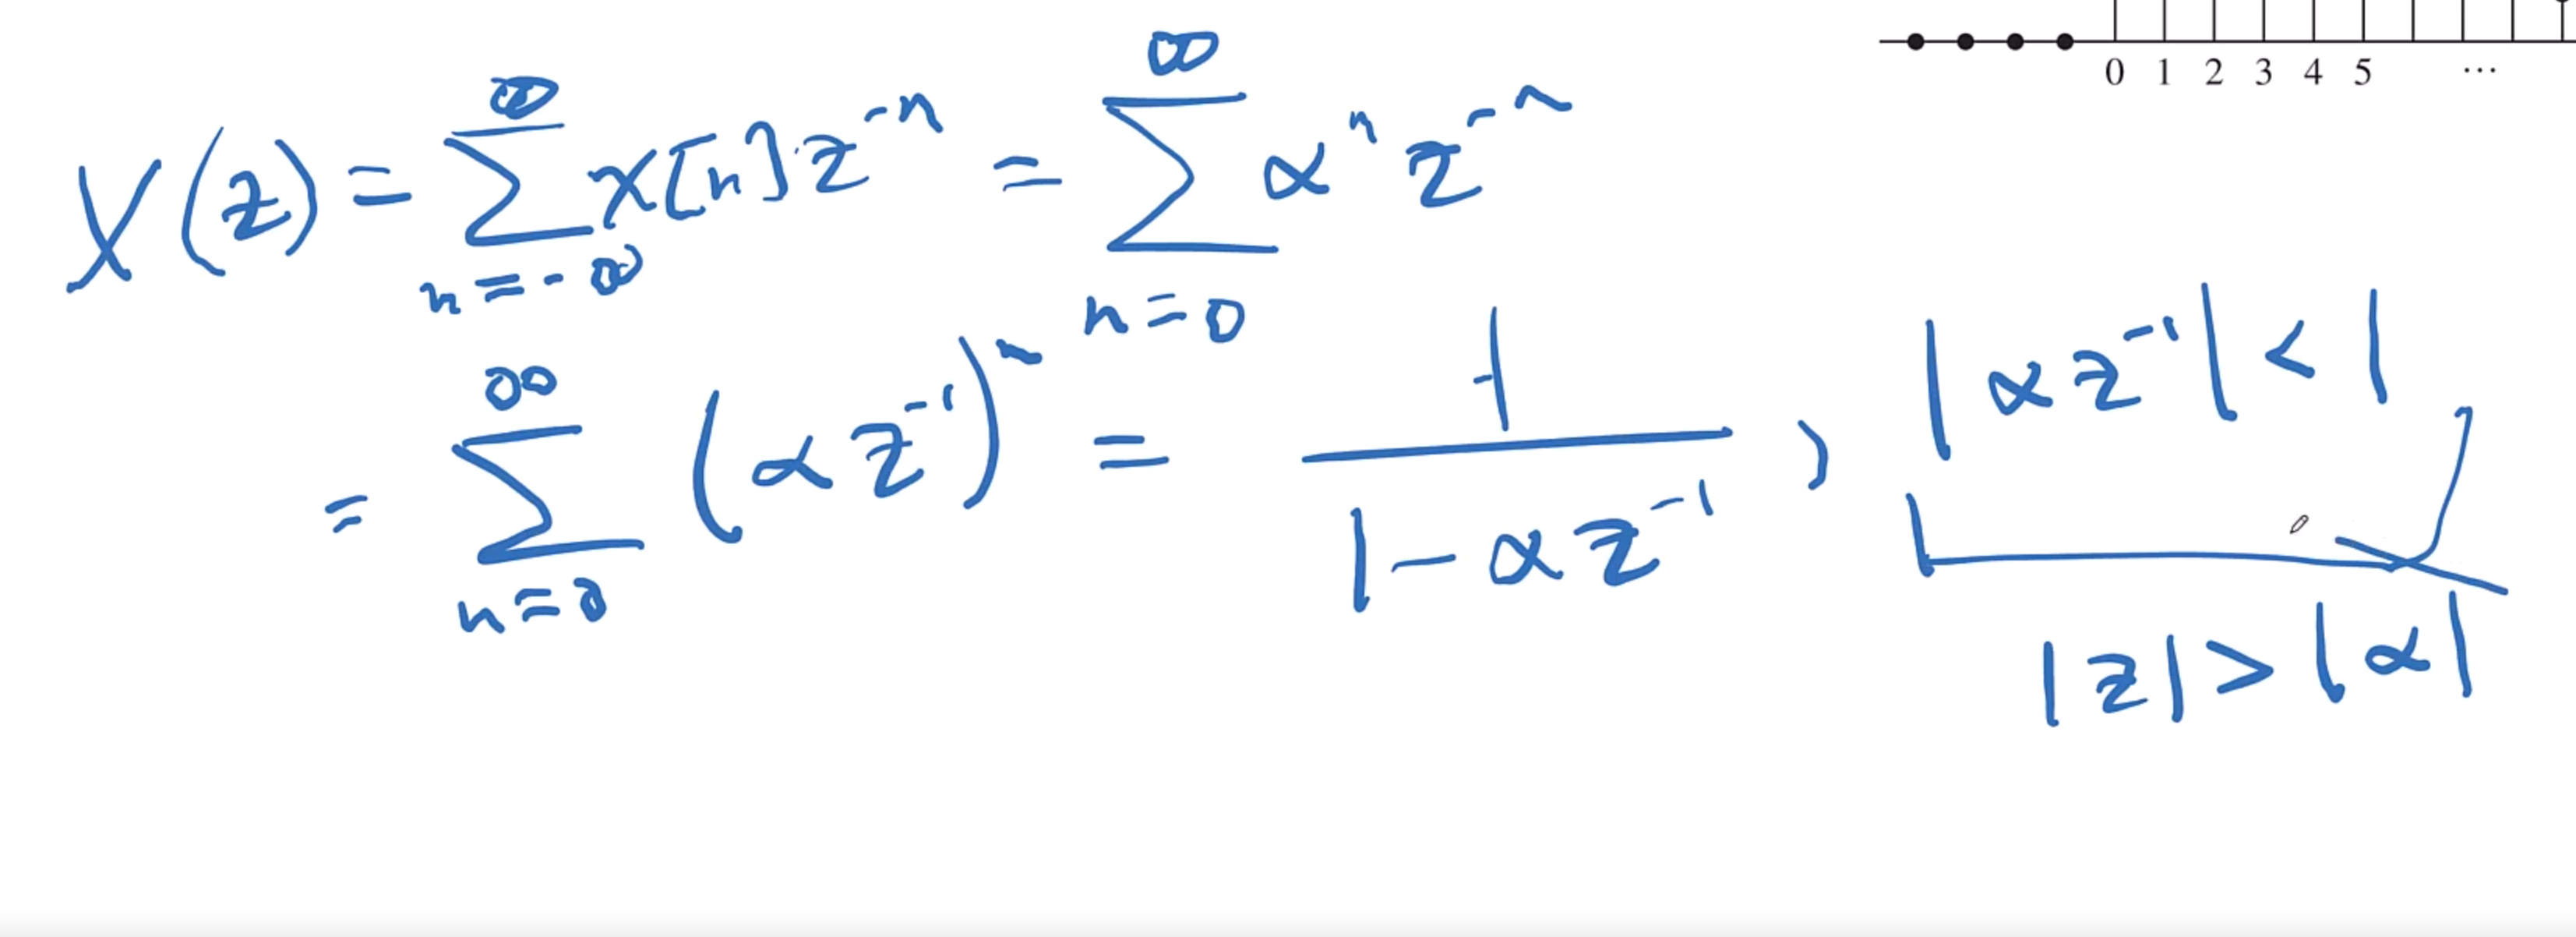 0 1 2 3 4 5 ...
X(z) = ∑_{n=-∞}^{∞} x[n] z^{-n} = ∑_{n=0}^{∞} α^n z^{-n}
= ∑_{n=0}^{∞} (α z^{-1})^n = 1 / (1 - α z^{-1}) , |α z^{-1}| < 1
|z| > |α|